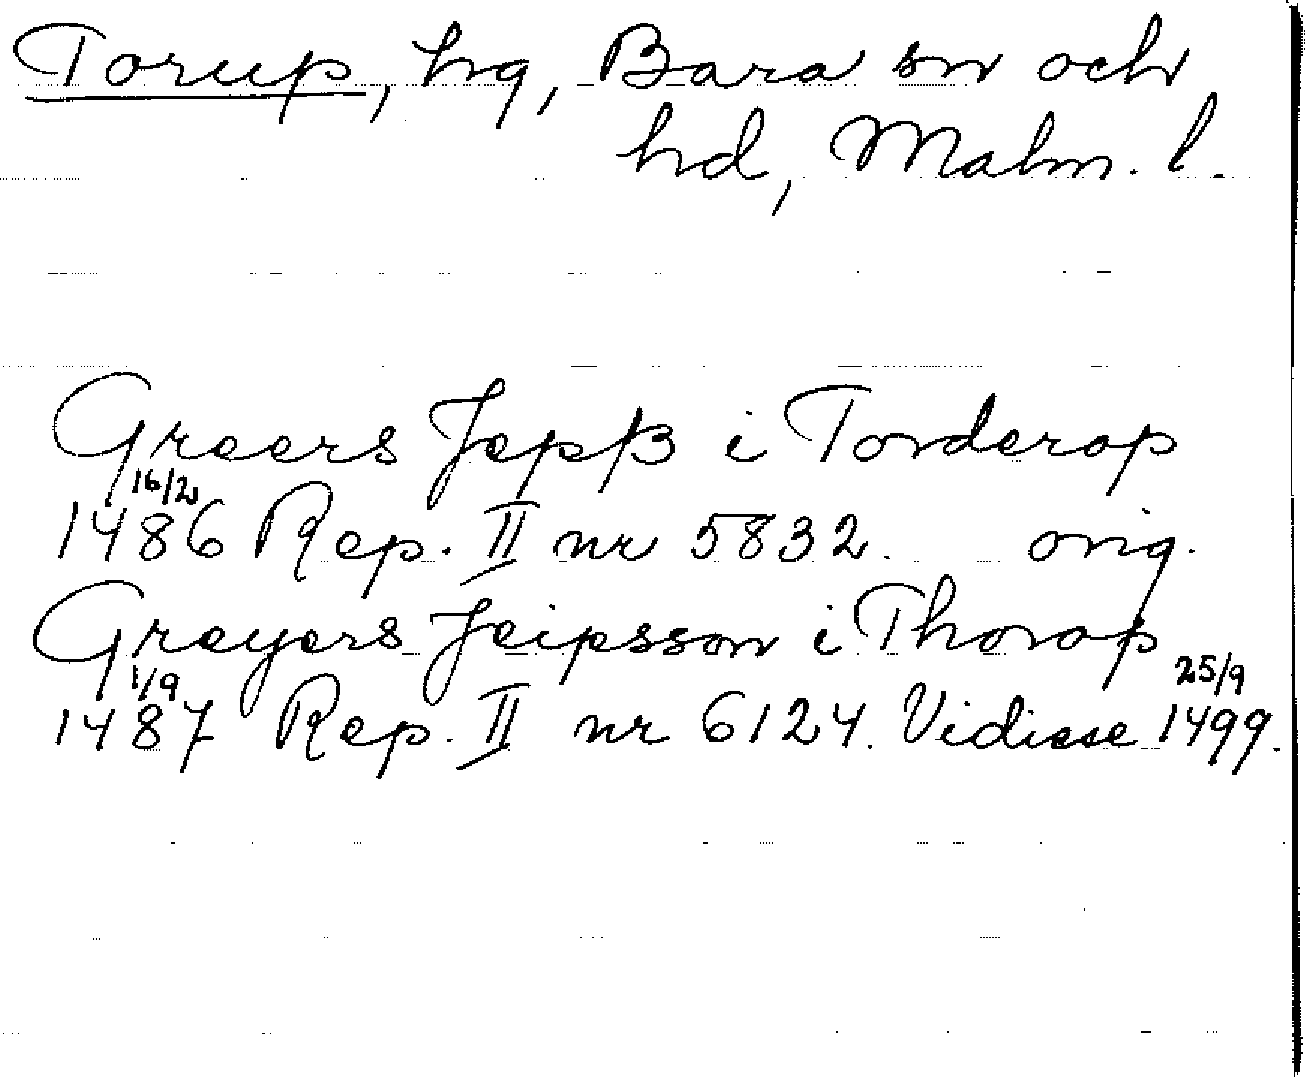 Torup, hg, Bara sn och
hd, Malm. l.
Greers Jepß i Torderop
16/2
1486 Rep. II nr 5832. orig.
Greyers Jeipsson i Thorop
1/9 25/9
1487 Rep. II nr 6124. Vidisse 1499.